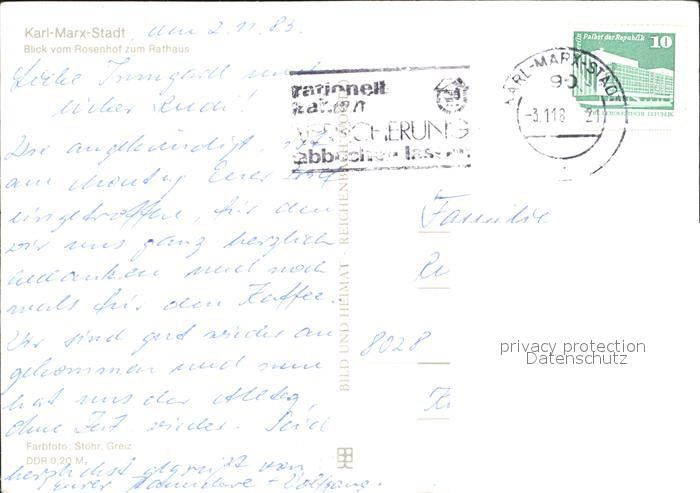 Karl-Marx-Stadt, den 2.11.83.
Blick vom Rosenhof zum Rathaus
Liebe Irmgard und
lieber Rudi!
Wie angekündigt, ist
am Montag Euer Brief
eingetroffen, für den
wir uns ganz herzlich
bedanken und noch
mals für den Kaffee.
Wir sind gut wieder an
gekommen und nun
hat uns der Alltag,
ohne Zeit wieder. Seid
herzlichst gegrüßt von
Eurer Hannelore + Wolfgang.
Farbfoto: Stöhr, Greiz
DDR 0,20 M
BILD UND HEIMAT · REICHENBACH
rationell
VERSICHERUNG
abbuchen lassen
KARL-MARX-STADT
90
-3.11.8
21
Palast der Republik
10
Familie
8028
privacy protection
Datenschutz